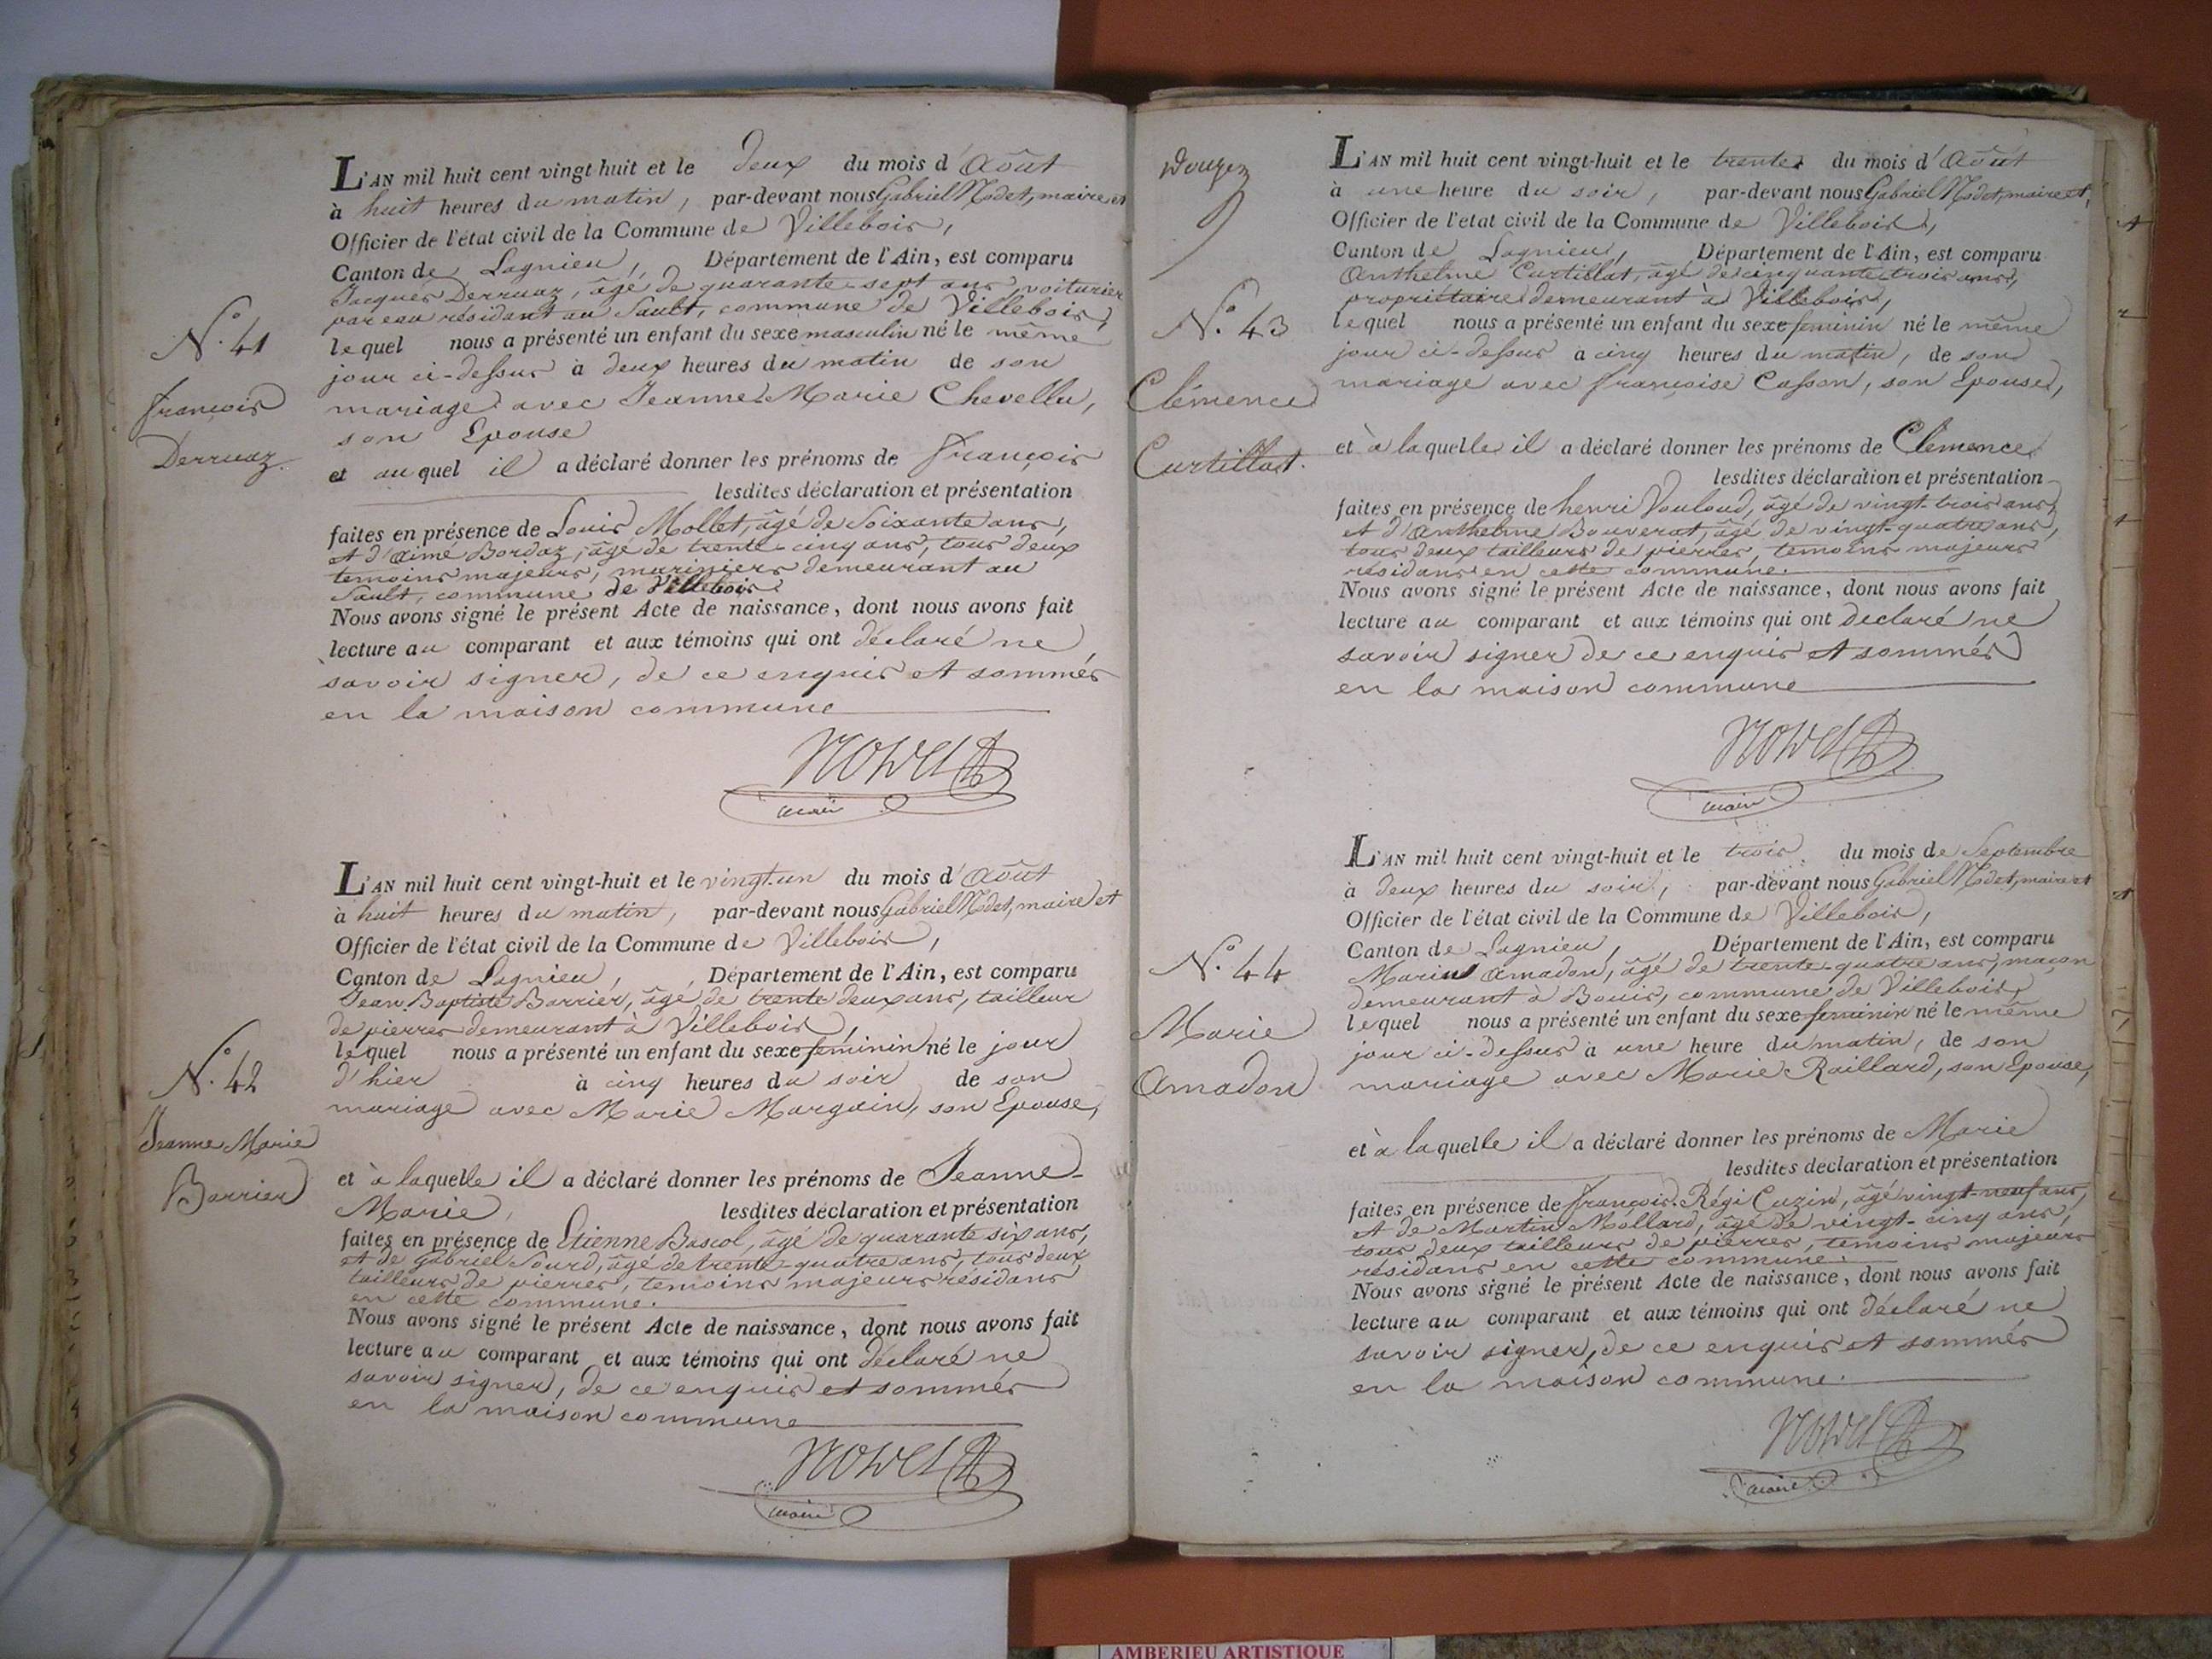 L'AN mil huit cent vingt-huit et le deux du mois d'Août
à huit heures du matin, par-devant nous Gabriel Nodet, maire et
Officier de l'état civil de la Commune de Villebois,
Canton de Lagnieu, Département de l'Ain, est comparu
Jacques Derruaz, âgé de quarante-sept ans, voiturier
par eau résidant au Sault, commune de Villebois,
lequel nous a présenté un enfant du sexe masculin né le même
jour ci-dessus à deux heures du matin de son
mariage avec Jeanne Marie Chevellu,
son Epouse
et auquel il a déclaré donner les prénoms de françois
lesdites déclaration et présentation
faites en présence de Louis Mollet, âgé de soixante ans,
et d'aimé Bordaz, âgé de trente-cinq ans, tous deux
temoins majeurs, mariniers demeurant au
Sault, commune de Villebois.
Nous avons signé le présent Acte de naissance, dont nous avons fait
lecture au comparant et aux témoins qui ont déclaré ne
savoir signer, de ce enquis et sommés
en la maison commune
N°. 41
françois
Derruaz
maire
L'AN mil huit cent vingt-huit et le vingt-un du mois d'Août
à huit heures du matin, par-devant nous Gabriel Nodet, maire et
Officier de l'état civil de la Commune de Villebois,
Canton de Lagnieu, Département de l'Ain, est comparu
Jean Baptiste Barrier, âgé de trente deux ans, tailleur
de pierres demeurant à Villebois,
lequel nous a présenté un enfant du sexe féminin né le jour
d'hier à cinq heures du soir de son
mariage avec Marie Margain, son Epouse,
et à laquelle il a déclaré donner les prénoms de Jeanne-
Marie, lesdites déclaration et présentation
faites en présence de Etienne Bascol, âgé de quarante six ans,
et de Gabriel Sourd, âgé de trente-quatre ans, tous deux
tailleurs de pierres, temoins majeurs résidans
en cette commune.
Nous avons signé le présent Acte de naissance, dont nous avons fait
lecture au comparant et aux témoins qui ont déclaré ne
savoir signer, de ce enquis et sommés
en la maison commune
N°. 42
Jeanne Marie
Barrier
maire
L'AN mil huit cent vingt-huit et le trente du mois d'Août
à une heure du soir, par-devant nous Gabriel Nodet, maire et,
Officier de l'etat civil de la Commune de Villebois,
Canton de Lagnieu, Département de l'Ain, est comparu
Anthelme Curtillat, âgé de cinquante trois ans,
propriétaire demeurant à Villebois,
lequel nous a présenté un enfant du sexe féminin né le même
jour ci-dessus à cinq heures du matin, de son
mariage avec françoise Casson, son Epouse,
et à laquelle il a déclaré donner les prénoms de Clémence
lesdites déclaration et présentation
faites en présence de henri Vouloud, âgé de vingt-trois ans
et d'Anthelme Bouverat, âgé de vingt-quatre ans,
tous deux tailleurs de pierres, temoins majeurs
résidans en cette commune.
Nous avons signé le présent Acte de naissance, dont nous avons fait
lecture au comparant et aux témoins qui ont declaré ne
savoir signer de ce enquis et sommés
en la maison commune
N°. 43
Clémence
Curtillat.
maire
L'AN mil huit cent vingt-huit et le trois du mois de Septembre
à deux heures du soir, par-devant nous Gabriel Nodet, maire et
Officier de l'état civil de la Commune de Villebois,
Canton de Lagnieu, Département de l'Ain, est comparu
Marin Amadon, âgé de trente-quatre ans, maçon
demeurant à Bouis, commune de Villebois,
lequel nous a présenté un enfant du sexe féminin né le même
jour ci-dessus à une heure du matin, de son
mariage avec Marie Raillard, son Epouse,
et à laquelle il a déclaré donner les prénoms de Marie
lesdites declaration et présentation
faites en présence de françois-Régi Cuzin, âgé vingt-neuf ans,
et de Martin Mollard, âgé de vingt-cinq ans,
tous deux tailleurs de pierres, temoins majeurs
résidans en cette commune.
Nous avons signé le présent Acte de naissance, dont nous avons fait
lecture au comparant et aux témoins qui ont déclaré ne
savoir signer, de ce enquis et sommés
en la maison commune.
N°. 44
Marie
Amadon
maire
AMBERIEU ARTISTIQUE